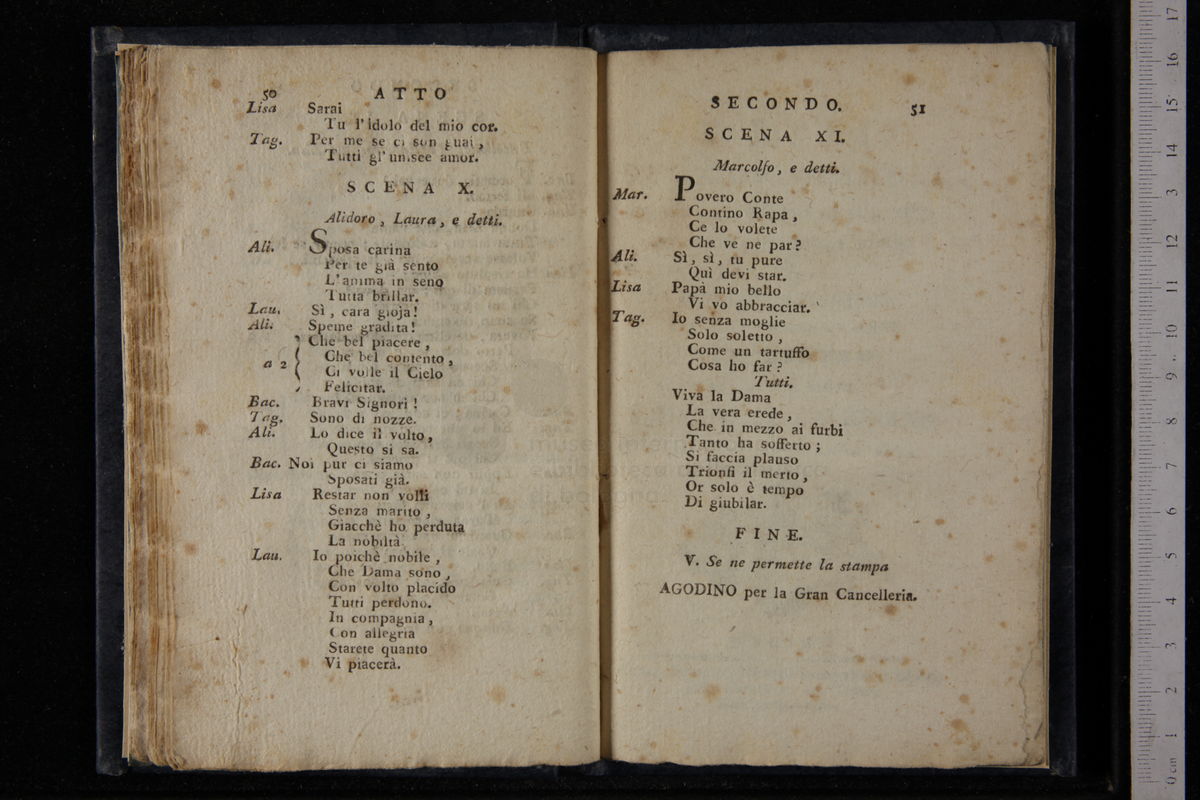 50 ATTO
Lisa Sarai
Tu l'idolo del mio cor.
Tag. Per me se ci son guai,
Tutti gl'unisce amor.
SCENA X.
Alidoro, Laura, e detti.
Ali. Sposa carina
Per te già sento
L'anima in seno
Tutta brillar.
Lau. Sì, cara gioja!
Ali. Speme gradita!
Che bel piacere,
a 2 Che bel contento,
Ci volle il Cielo
Felicitar.
Bac. Bravi Signori!
Tag. Sono di nozze.
Ali. Lo dice il volto,
Questo si sa.
Bac. Noi pur ci siamo
Sposati già.
Lisa Restar non volli
Senza marito,
Giacchè ho perduta
La nobiltà.
Lau. Io poichè nobile,
Che Dama sono,
Con volto placido
Tutti perdono.
In compagnia,
Con allegria
Starete quanto
Vi piacerà.
SECONDO. 51
SCENA XI.
Marcolfo, e detti.
Mar. Povero Conte
Contino Rapa,
Ce lo volete
Che ve ne par?
Ali. Sì, sì, tu pure
Quì devi star.
Lisa Papà mio bello
Vi vo abbracciar.
Tag. Io senza moglie
Solo soletto,
Come un tartuffo
Cosa ho far?
Tutti.
Viva la Dama
La vera erede,
Che in mezzo ai furbi
Tanto ha sofferto;
Si faccia plauso
Trionfi il merto,
Or solo è tempo
Di giubilar.
FINE.
V. Se ne permette la stampa
AGODINO per la Gran Cancelleria.
0 cm 1 2 3 4 5 6 7 8 9 10 11 12 13 14 15 16 17